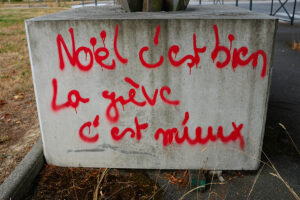 Noël c'est bien
La grève
c'est mieux